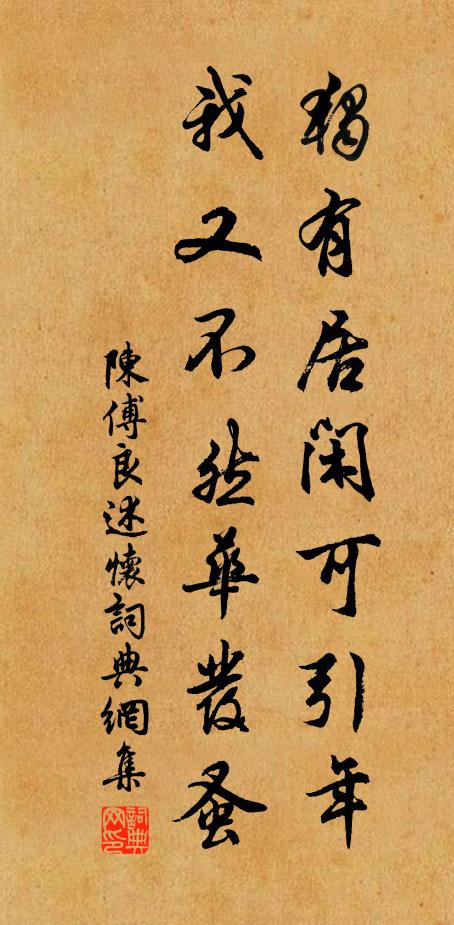 獨有居閑可引年
我又不然華發蚤
陳傅良述懷詞典網集
詞典网印